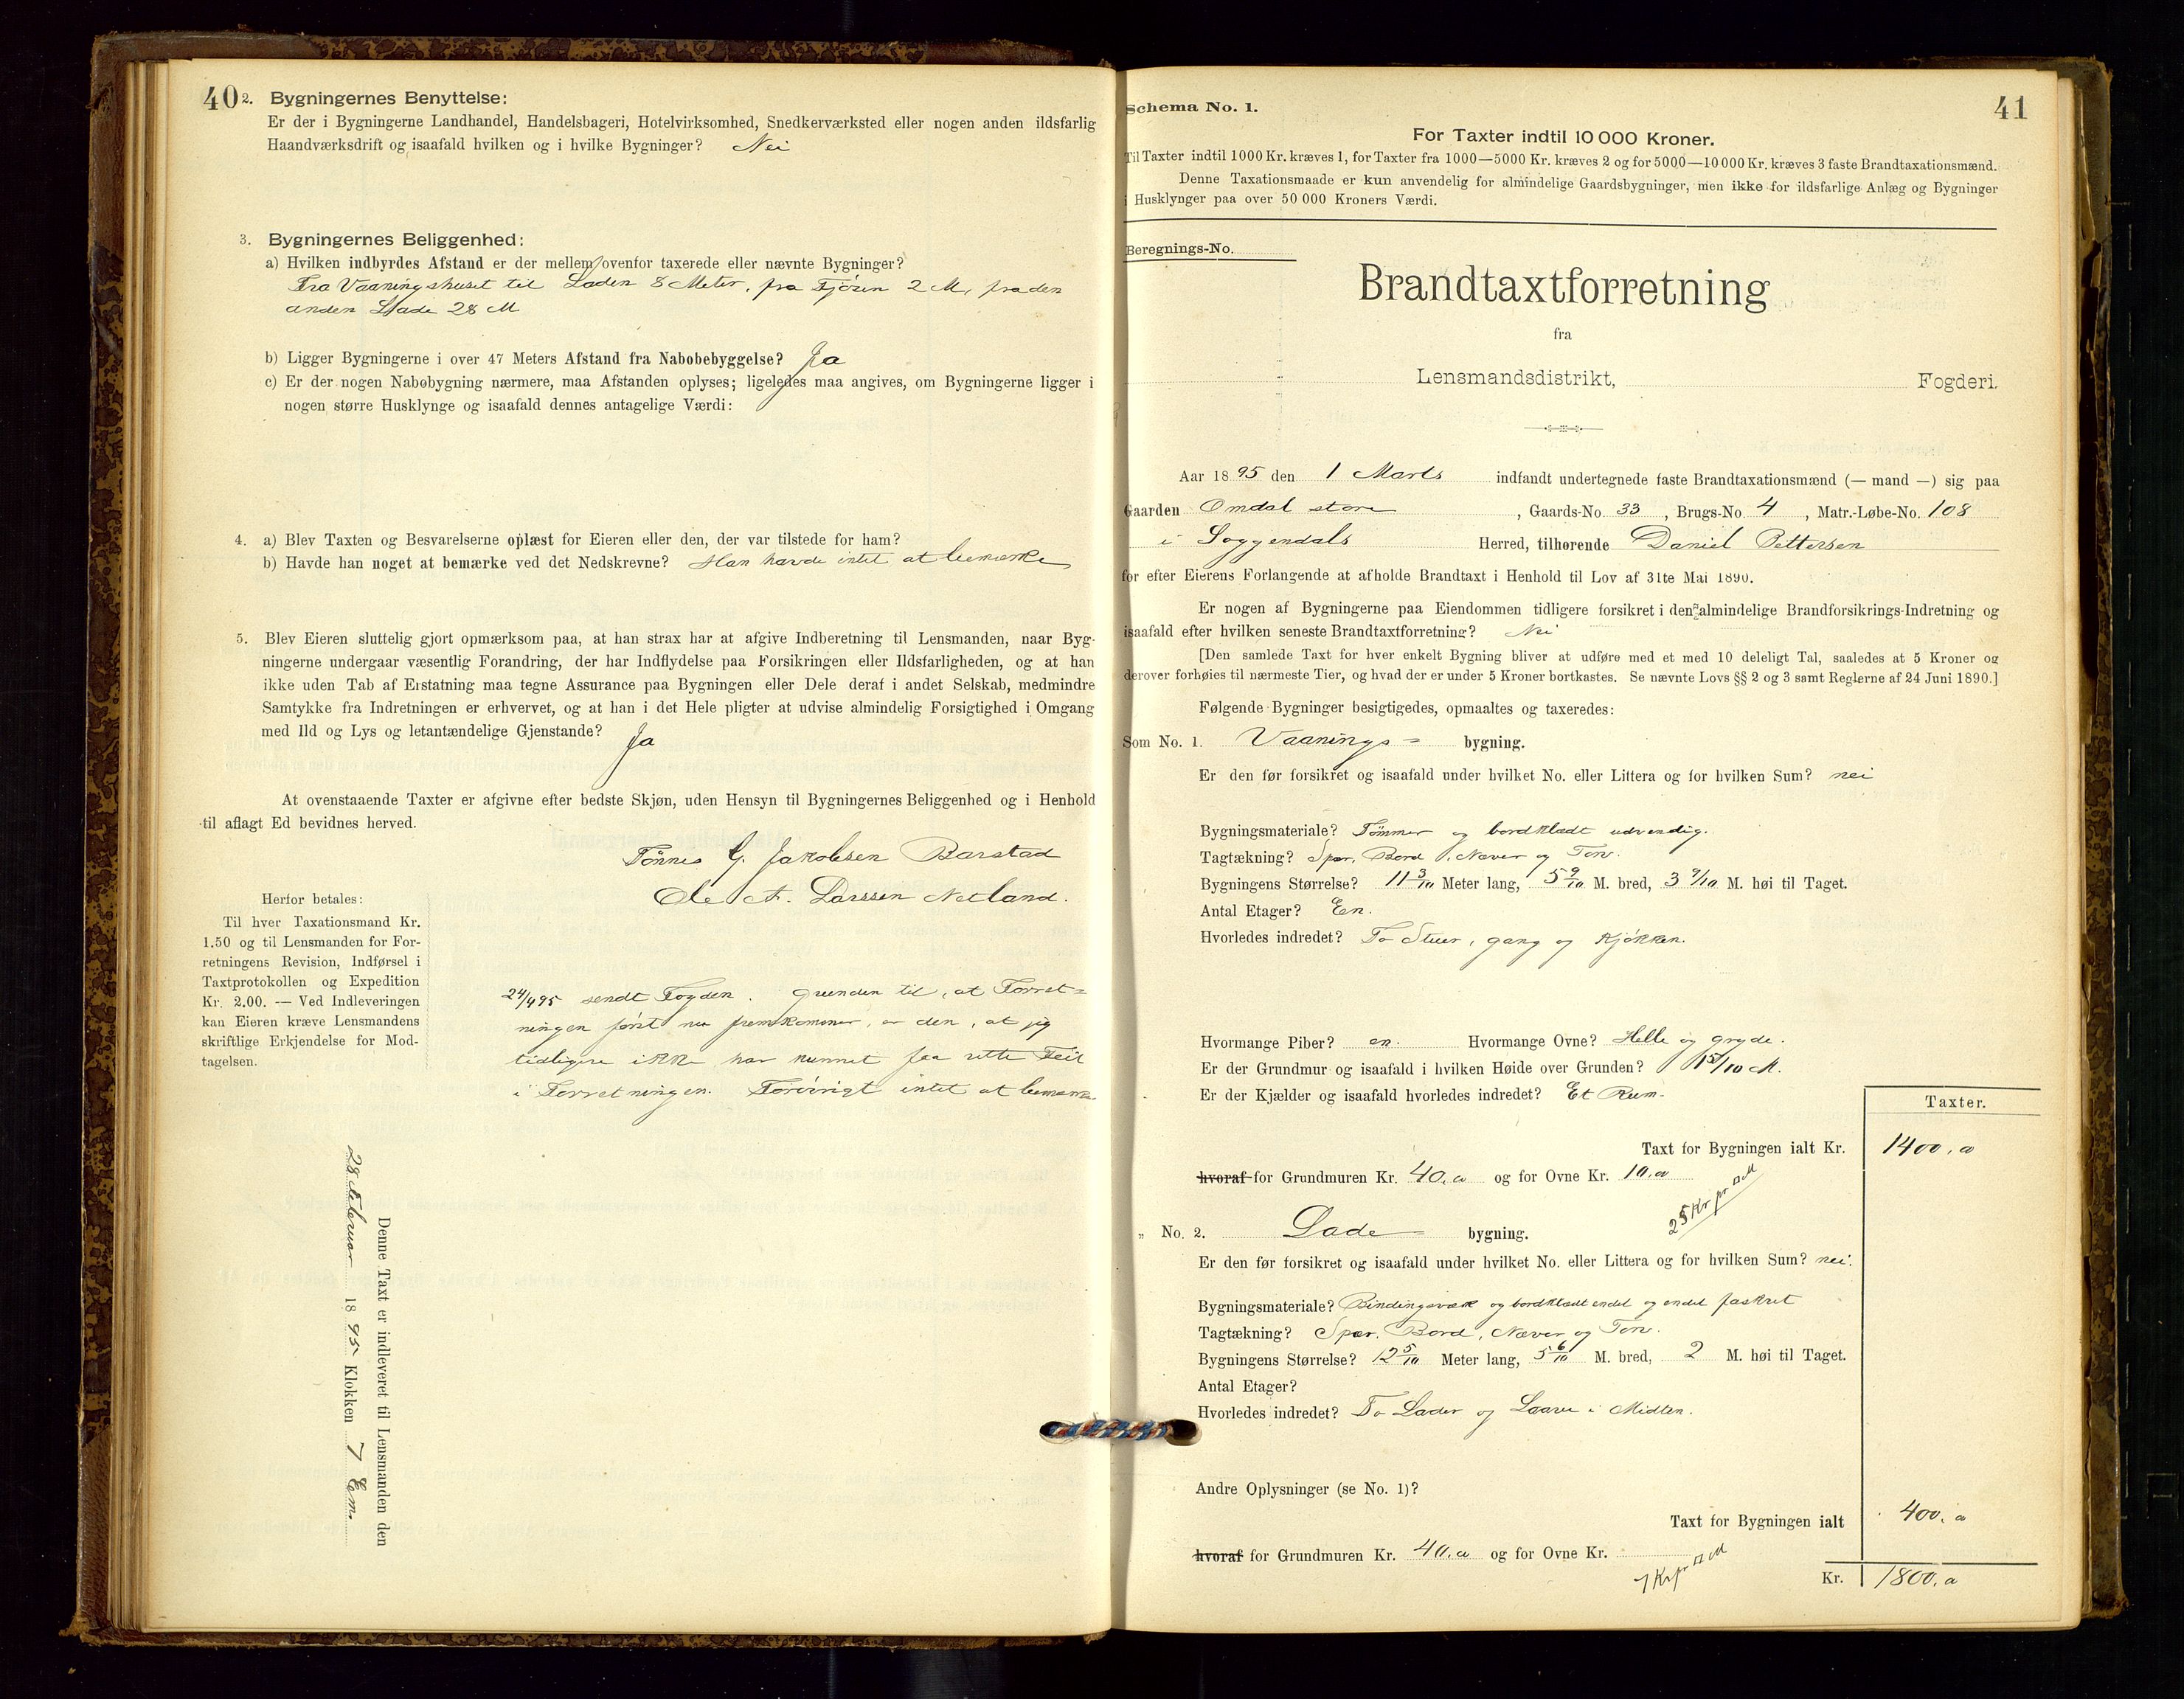 40
2. Bygningernes Benyttelse:
Er der i Bygningerne Landhandel, Handelsbageri, Hotelvirksomhed, Snedkerværksted eller nogen anden ildsfarlig
Haandværksdrift og isaafald hvilken og i hvilke Bygninger? Nei
3. Bygningernes Beliggenhed:
a) Hvilken indbyrdes Afstand er der mellem ovenfor taxerede eller nævnte Bygninger?
Fra Vaaningshuset til Laden 8 Meter, fra Fjøsen 2 M, fra den
anden Lade 28 M
b) Ligger Bygningerne i over 47 Meters Afstand fra Nabobebyggelse? Ja
c) Er der nogen Nabobygning nærmere, maa Afstanden oplyses; ligeledes maa angives, om Bygningerne ligger i
nogen større Husklynge og isaafald dennes antagelige Værdi:
4. a) Blev Taxten og Besvarelserne oplæst for Eieren eller den, der var tilstede for ham?
b) Havde han noget at bemærke ved det Nedskrevne? Han havde intet at bemærke
5. Blev Eieren sluttelig gjort opmærksom paa, at han strax har at afgive Indberetning til Lensmanden, naar Byg-
ningerne undergaar væsentlig Forandring, der har Indflydelse paa Forsikringen eller Ildsfarligheden, og at han
ikke uden Tab af Erstatning maa tegne Assurance paa Bygningen eller Dele deraf i andet Selskab, medmindre
Samtykke fra Indretningen er erhvervet, og at han i det Hele pligter at udvise almindelig Forsigtighed i Omgang
med Ild og Lys og letantændelige Gjenstande? Ja
At ovenstaaende Taxter er afgivne efter bedste Skjøn, uden Hensyn til Bygningernes Beliggenhed og i Henhold
til aflagt Ed bevidnes herved.
Tønnes G. Jakobsen Barstad
Ole A. Larssen Netland.
Herfor betales:
Til hver Taxationsmand Kr.
1.50 og til Lensmanden for For-
retningens Revision, Indførsel i
Taxtprotokollen og Expedition
Kr. 2.00. — Ved Indleveringen
kan Eieren kræve Lensmandens
skriftlige Erkjendelse for Mod-
tagelsen.
24/4 95 sendt Fogden. Grunden til, at Forret=
ningen først nu fremkommer, er den, at jeg
tidligere ikke har kunnet faa rette Feil
i Forretningen. Forøvrigt intet at bemærke
Denne Taxt er indleveret til Lensmanden den
28 Februar 1895 Klokken 7 Em.
41
Schema No. 1.
For Taxter indtil 10 000 Kroner.
Til Taxter indtil 1000 Kr. kræves 1, for Taxter fra 1000—5000 Kr. kræves 2 og for 5000—10 000 Kr. kræves 3 faste Brandtaxationsmænd.
Denne Taxationsmaade er kun anvendelig for almindelige Gaardsbygninger, men ikke for ildsfarlige Anlæg og Bygninger
i Husklynger paa over 50 000 Kroners Værdi.
Beregnings-No.
Brandtaxtforretning
fra
Lensmandsdistrikt, Fogderi.
Aar 1895 den 1 Marts indfandt undertegnede faste Brandtaxationsmænd (— mand —) sig paa
Gaarden Omdal store, Gaards-No. 33, Brugs-No. 4, Matr.-Løbe-No. 108
i Soggendals Herred, tilhørende Daniel Pettersen
for efter Eierens Forlangende at afholde Brandtaxt i Henhold til Lov af 31te Mai 1890.
Er nogen af Bygningerne paa Eiendommen tidligere forsikret i den almindelige Brandforsikrings-Indretning og
isaafald efter hvilken seneste Brandtaxtforretning? Nei
[Den samlede Taxt for hver enkelt Bygning bliver at udføre med et med 10 deleligt Tal, saaledes at 5 Kroner og
derover forhøies til nærmeste Tier, og hvad der er under 5 Kroner bortkastes. Se nævnte Lovs §§ 2 og 3 samt Reglerne af 24 Juni 1890.]
Følgende Bygninger besigtigedes, opmaaltes og taxeredes:
Som No. 1. Vaanings= bygning.
Er den før forsikret og isaafald under hvilket No. eller Littera og for hvilken Sum? nei
Bygningsmateriale? Tømmer og bordklædt udvendig.
Tagtækning? Spær, Bord, Næver og Torv.
Bygningens Størrelse? 11 3/10 Meter lang, 5 9/10 M. bred, 3 9/10 M. høi til Taget.
Antal Etager? En.
Hvorledes indredet? To Stuer, gang og Kjøkken.
Hvormange Piber? en. Hvormange Ovne? Helle og gryde.
Er der Grundmur og isaafald i hvilken Høide over Grunden? 15/10 M.
Er der Kjælder og isaafald hvorledes indredet? Et Rum.
Taxter.
Taxt for Bygningen ialt Kr. 1400,00
hvoraf for Grundmuren Kr. 40,00 og for Ovne Kr. 10,00
25 Kr pr □ M
„ No. 2. Lade bygning.
Er den før forsikret og isaafald under hvilket No. eller Littera og for hvilken Sum? nei.
Bygningsmateriale? Bindingsværk og bordklædt endel og endel faskret
Tagtækning? Spær, Bord, Næver og Torv.
Bygningens Størrelse? 12 5/10 Meter lang, 5 6/10 M. bred, 2 M. høi til Taget.
Antal Etager?
Hvorledes indredet? To Lader og Laave i Midten.
Andre Oplysninger (se No. 1)?
Taxt for Bygningen ialt 400,00
hvoraf for Grundmuren Kr. 40,00 og for Ovne Kr.
7 Kr pr □ M
Kr. 1800,00